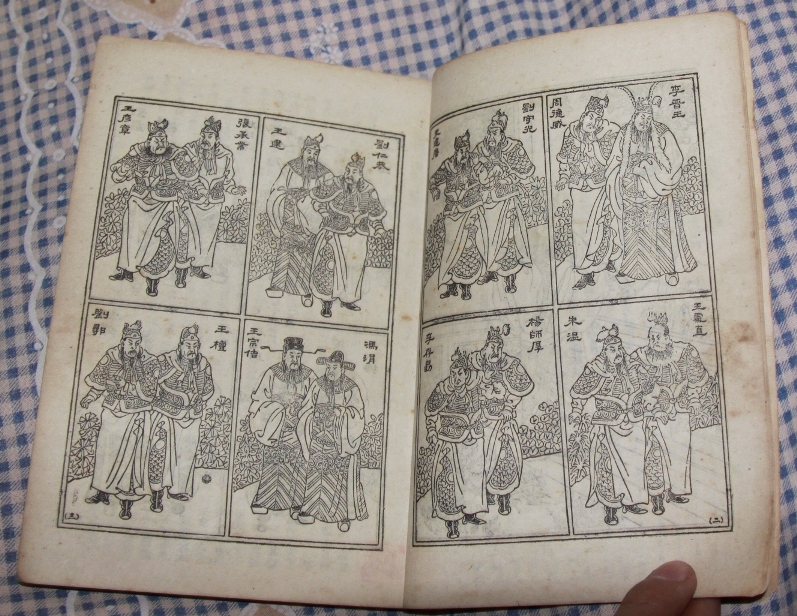 李晉王
周德威
劉守光
王處直
朱溫
楊師厚
李存勗
(二)
劉仁恭
王建
張承業
王彥章
馮涓
王宗佶
王檀
劉鄩
(三)